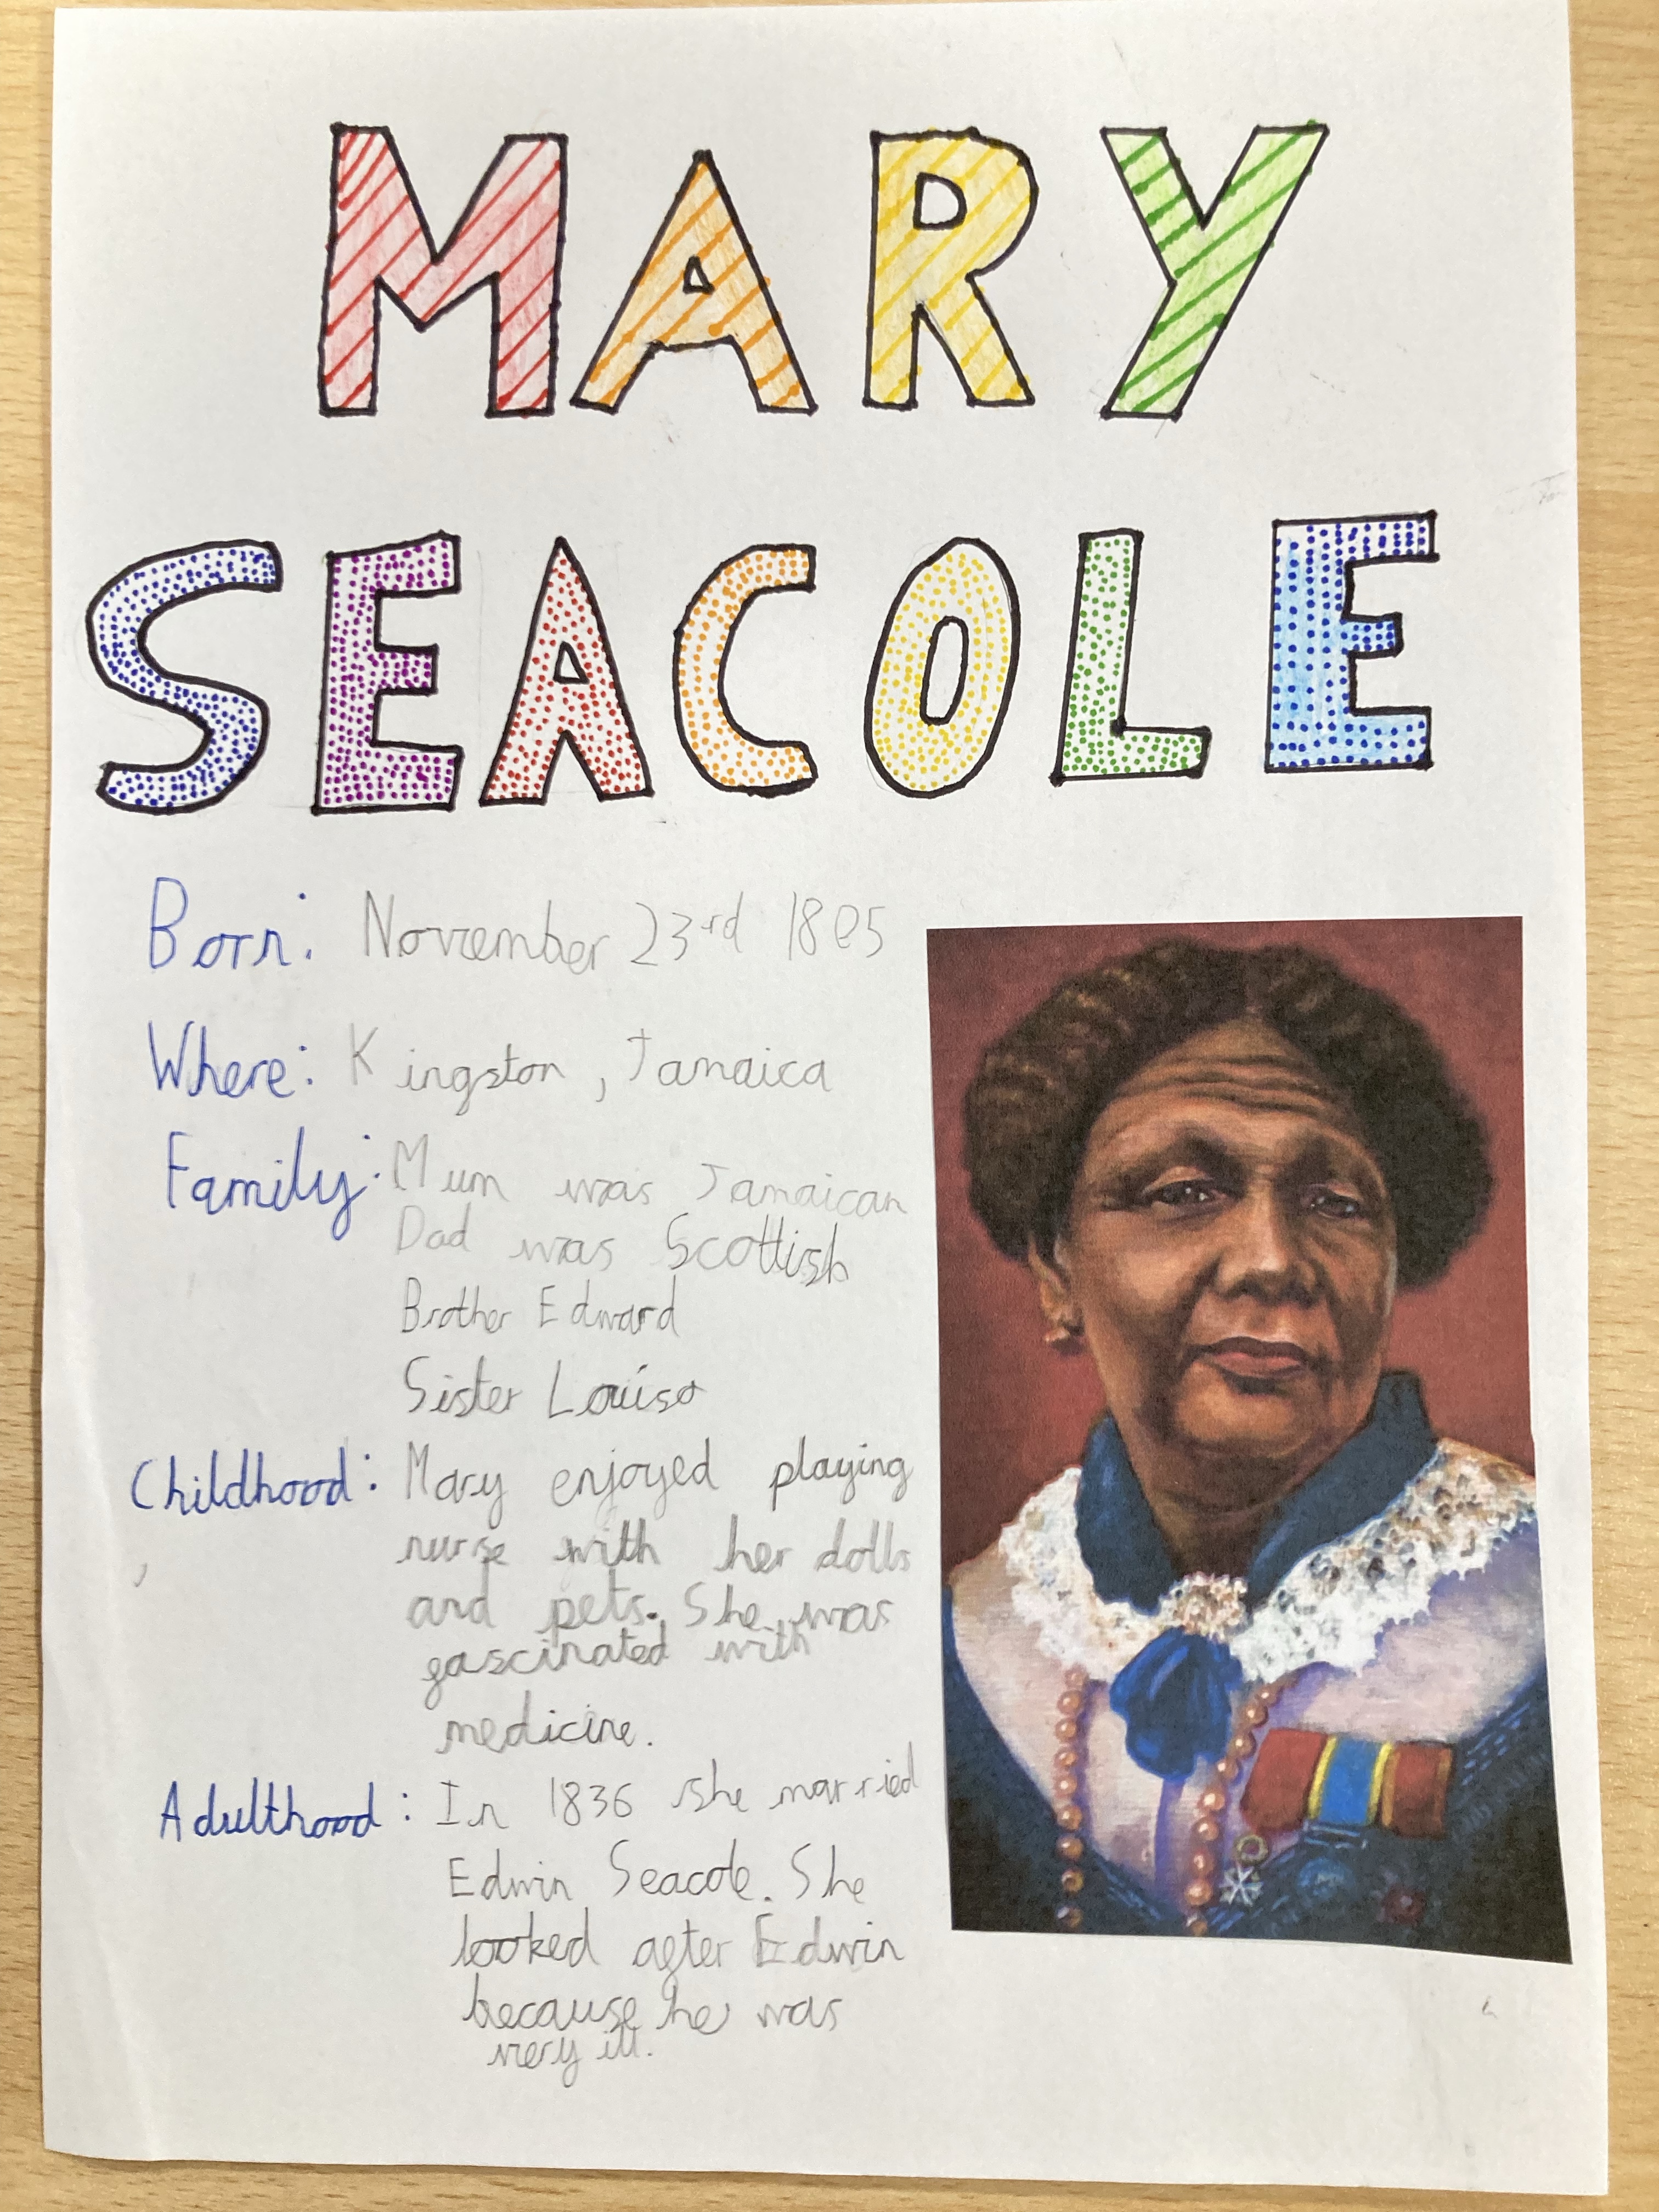 MARY
SEACOLE
Born: November 23rd 1805
Where: Kingston, Jamaica
Family: Mum was Jamaican
Dad was Scottish
Brother Edward
Sister Louisa
Childhood: Mary enjoyed playing
nurse with her dolls
and pets. She was
fascinated with
medicine.
Adulthood: In 1836 she married
Edwin Seacole. She
looked after Edwin
because he was
very ill.